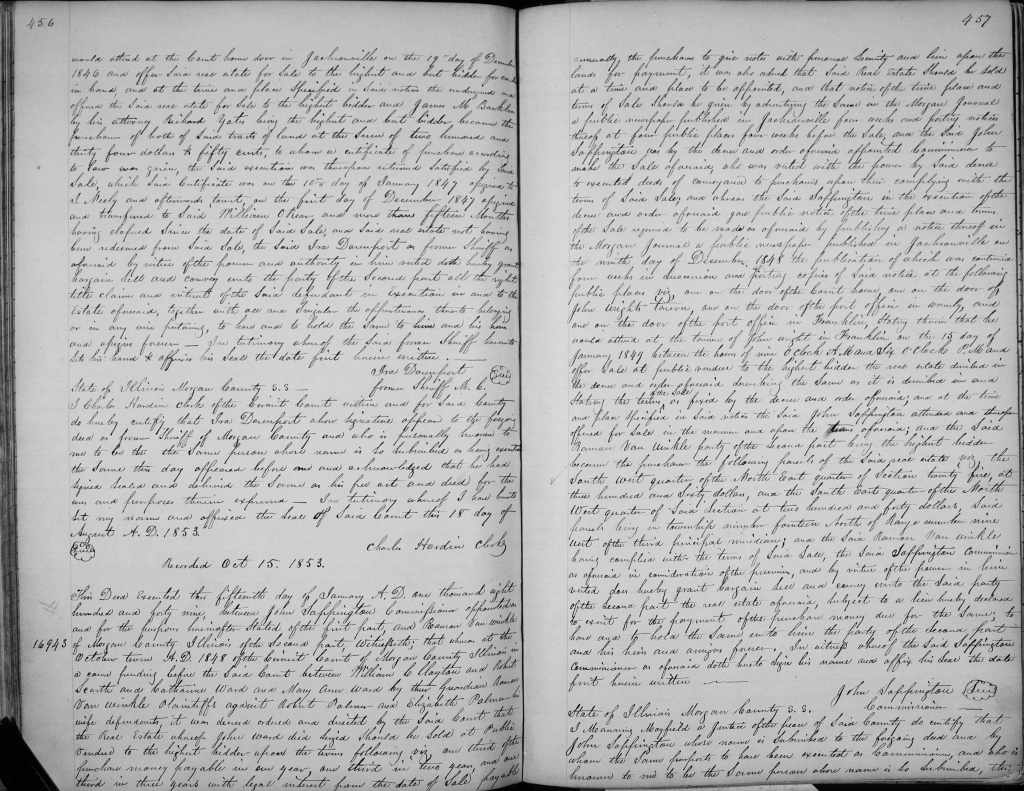 456
would attend at the Court house door in Jacksonville on the 19th day of December
1846 and offer said real estate for sale to the highest and best bidder for cash
in hand, and at the time and place specified in said notice the undersigned
offered the said real estate for sale to the highest bidder and James M.
by his attorney Richard Yates being the highest and best bidder became the
purchaser of both of said tracts of land at the sum of two hundred and
thirty four dollars & fifty cents, to whom a certificate of purchase according
to law was given, the said execution was thereupon returned satisfied by said
Sale, which said Certificate was on the 10th day of January 1847 assigned to
J Neely and afterwards to wit, on the first day of December 1847 assigned
and transferred to said William and more than fifteen Months
having elapsed since the date of said Sale, and said real estate not having
been redeemed from said Sale, the said Ira Davenport as former Sheriff as
aforesaid by virtue of the power and authority in him vested doth hereby grant
bargain sell and convey unto the party of the second part all the right
title claim and interest of the said defendant in execution in and to the
Estate aforesaid, together with all and singular the appurtenances thereto belonging
or in any wise pertaining, to have and to hold the same to him and his heirs
and assigns forever — In testimony whereof the said former Sheriff hereunto
sets his hand & affixes his seal the date first herein written. —
Ira Davenport Seal
former Sheriff M. C.
State of Illinois Morgan County S.S —
I Charles Hardin clerk of the Circuit Court within and for said County
do hereby certify that Ira Davenport whose signature appears to the foregoing
deed as former Sheriff of Morgan County and who is personally known to
me to be the same person whose name is so subscribed as having executed
the same this day appeared before me and acknowledged that he had
signed sealed and delivered the same as his free act and deed for the
uses and purposes therein expressed — In testimony whereof I have hereunto
set my name and affixed the seal of said Court this 18 day of
August A.D. 1853.
Charles Hardin Clerk
Recorded Oct 15. 1853.
This Deed Executed this fifteenth day of January A.D. one thousand eight
hundred and forty nine, between John Sappington Commissioner appointed as
and for the purpose hereinafter stated of the first part, and Ransom Van winkle
16943
of Morgan County Illinois of the second part, Witnesseth; that whereas at the
October term A.D. 1848 of the Circuit Court of Morgan County Illinois in
a cause pending before the said Court between William C Clayton and Robert
South and Catharine Ward and Mary Ann Ward by their Guardian Ransom
Van winkle Plaintiffs against Robert Palmer and Elizabeth Palmer his
wife defendants, it was decreed ordered and directed by the said Court that
the Real Estate whereof John Ward died seized should be sold at Public
Vendue to the highest bidder upon the terms following viz. one third of the
purchase money payable in one year, one third in two years, and one
third in three years with legal interest from the date of Sale payable
457
annually, the purchaser to give notes with personal security and lien upon the
lands for payment, it was also ordered that said Real Estate should be sold
at a time and place to be appointed, and that notice of the time place and
terms of Sale should be given by advertizing the same in the Morgan Journal
a public newspaper published in Jacksonville four weeks and posting notices
thereof at four public places four weeks before the Sale, and the said John
Sappington was by the decree and order aforesaid appointed Commissioner to
make the Sale aforesaid, who was vested with the power by said decree
to executed deeds of conveyance to purchasers upon their complying with the
terms of said Sale; and whereas the said Sappington in the execution of the
decree and order aforesaid gave public notice of the time place and terms
of the Sale required to be made as aforesaid by publishing a notice thereof in
the Morgan Journal a public newspaper published in Jacksonville on
the ninth day of December 1848 the publication of which was continued
four weeks in succession and posting copies of said notice at the following
public places viz, one on the door of the Court house, one on the door of
John Wrights tavern, one on the door of the post office in and
one on the door of the post office in Franklin, stating therein that he
would attend at the tavern of John Wright in Franklin on the 15 day of
January 1849 between the hours of nine O'Clock A.M and Six O'Clock P.M and
offer Sale at public vendue to the highest bidder the real estate described in
the decree and order aforesaid describing the same as it is described in and
stating the terms of the Sale fixed by the decree and order aforesaid; and at the time
and place specified in said notice the said John Sappington attended and thereupon
offered for Sale in the manner and upon the terms aforesaid; and the said
Ransom Van winkle party of the second part being the highest bidder
became the purchaser the following parcels of the said real estate viz, the
South West quarter of the North East quarter of Section twenty five, at
three hundred and Sixty dollars, and the South East quarter of the North
West quarter of said Section at two hundred and forty dollars, said
parcels being in township number fourteen North of Range number nine
west of the third principal meridian; and the said Ransom Van winkle
having complied with the terms of said Sale, the said Sappington Commissioner
as aforesaid in consideration of the premises, and by virtue of the power in him
vested does hereby grant bargain sell and convey unto the said party
of the second part the real estate aforesaid, subject to a lien hereby declared
to exist for the payment of the purchase money due for the same; to
have and to hold the same unto him the party of the second part
and his heirs and assigns forever, In witness whereof the said Sappington
Commissioner as aforesaid doth hereto sign his name and affix his seal the date
first herein written —
John Sappington Seal
Commissioner —
State of Illinois Morgan County S.S.
I Manning Mayfield a Justice of the peace of said County do certify that
John Sappington whose name is subscribed to the foregoing deed and by
whom the same purports to have been executed as Commissioner, and who is
known to me to be the same person whose name is so subscribed, this